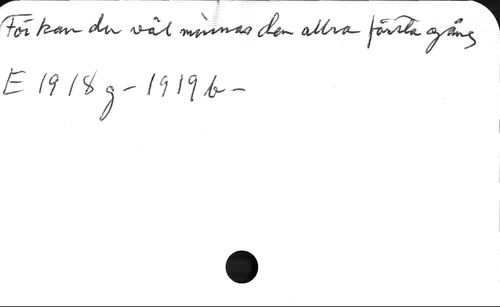 För kan du väl minnas den allra första gång
E 1918 g - 1919 b -